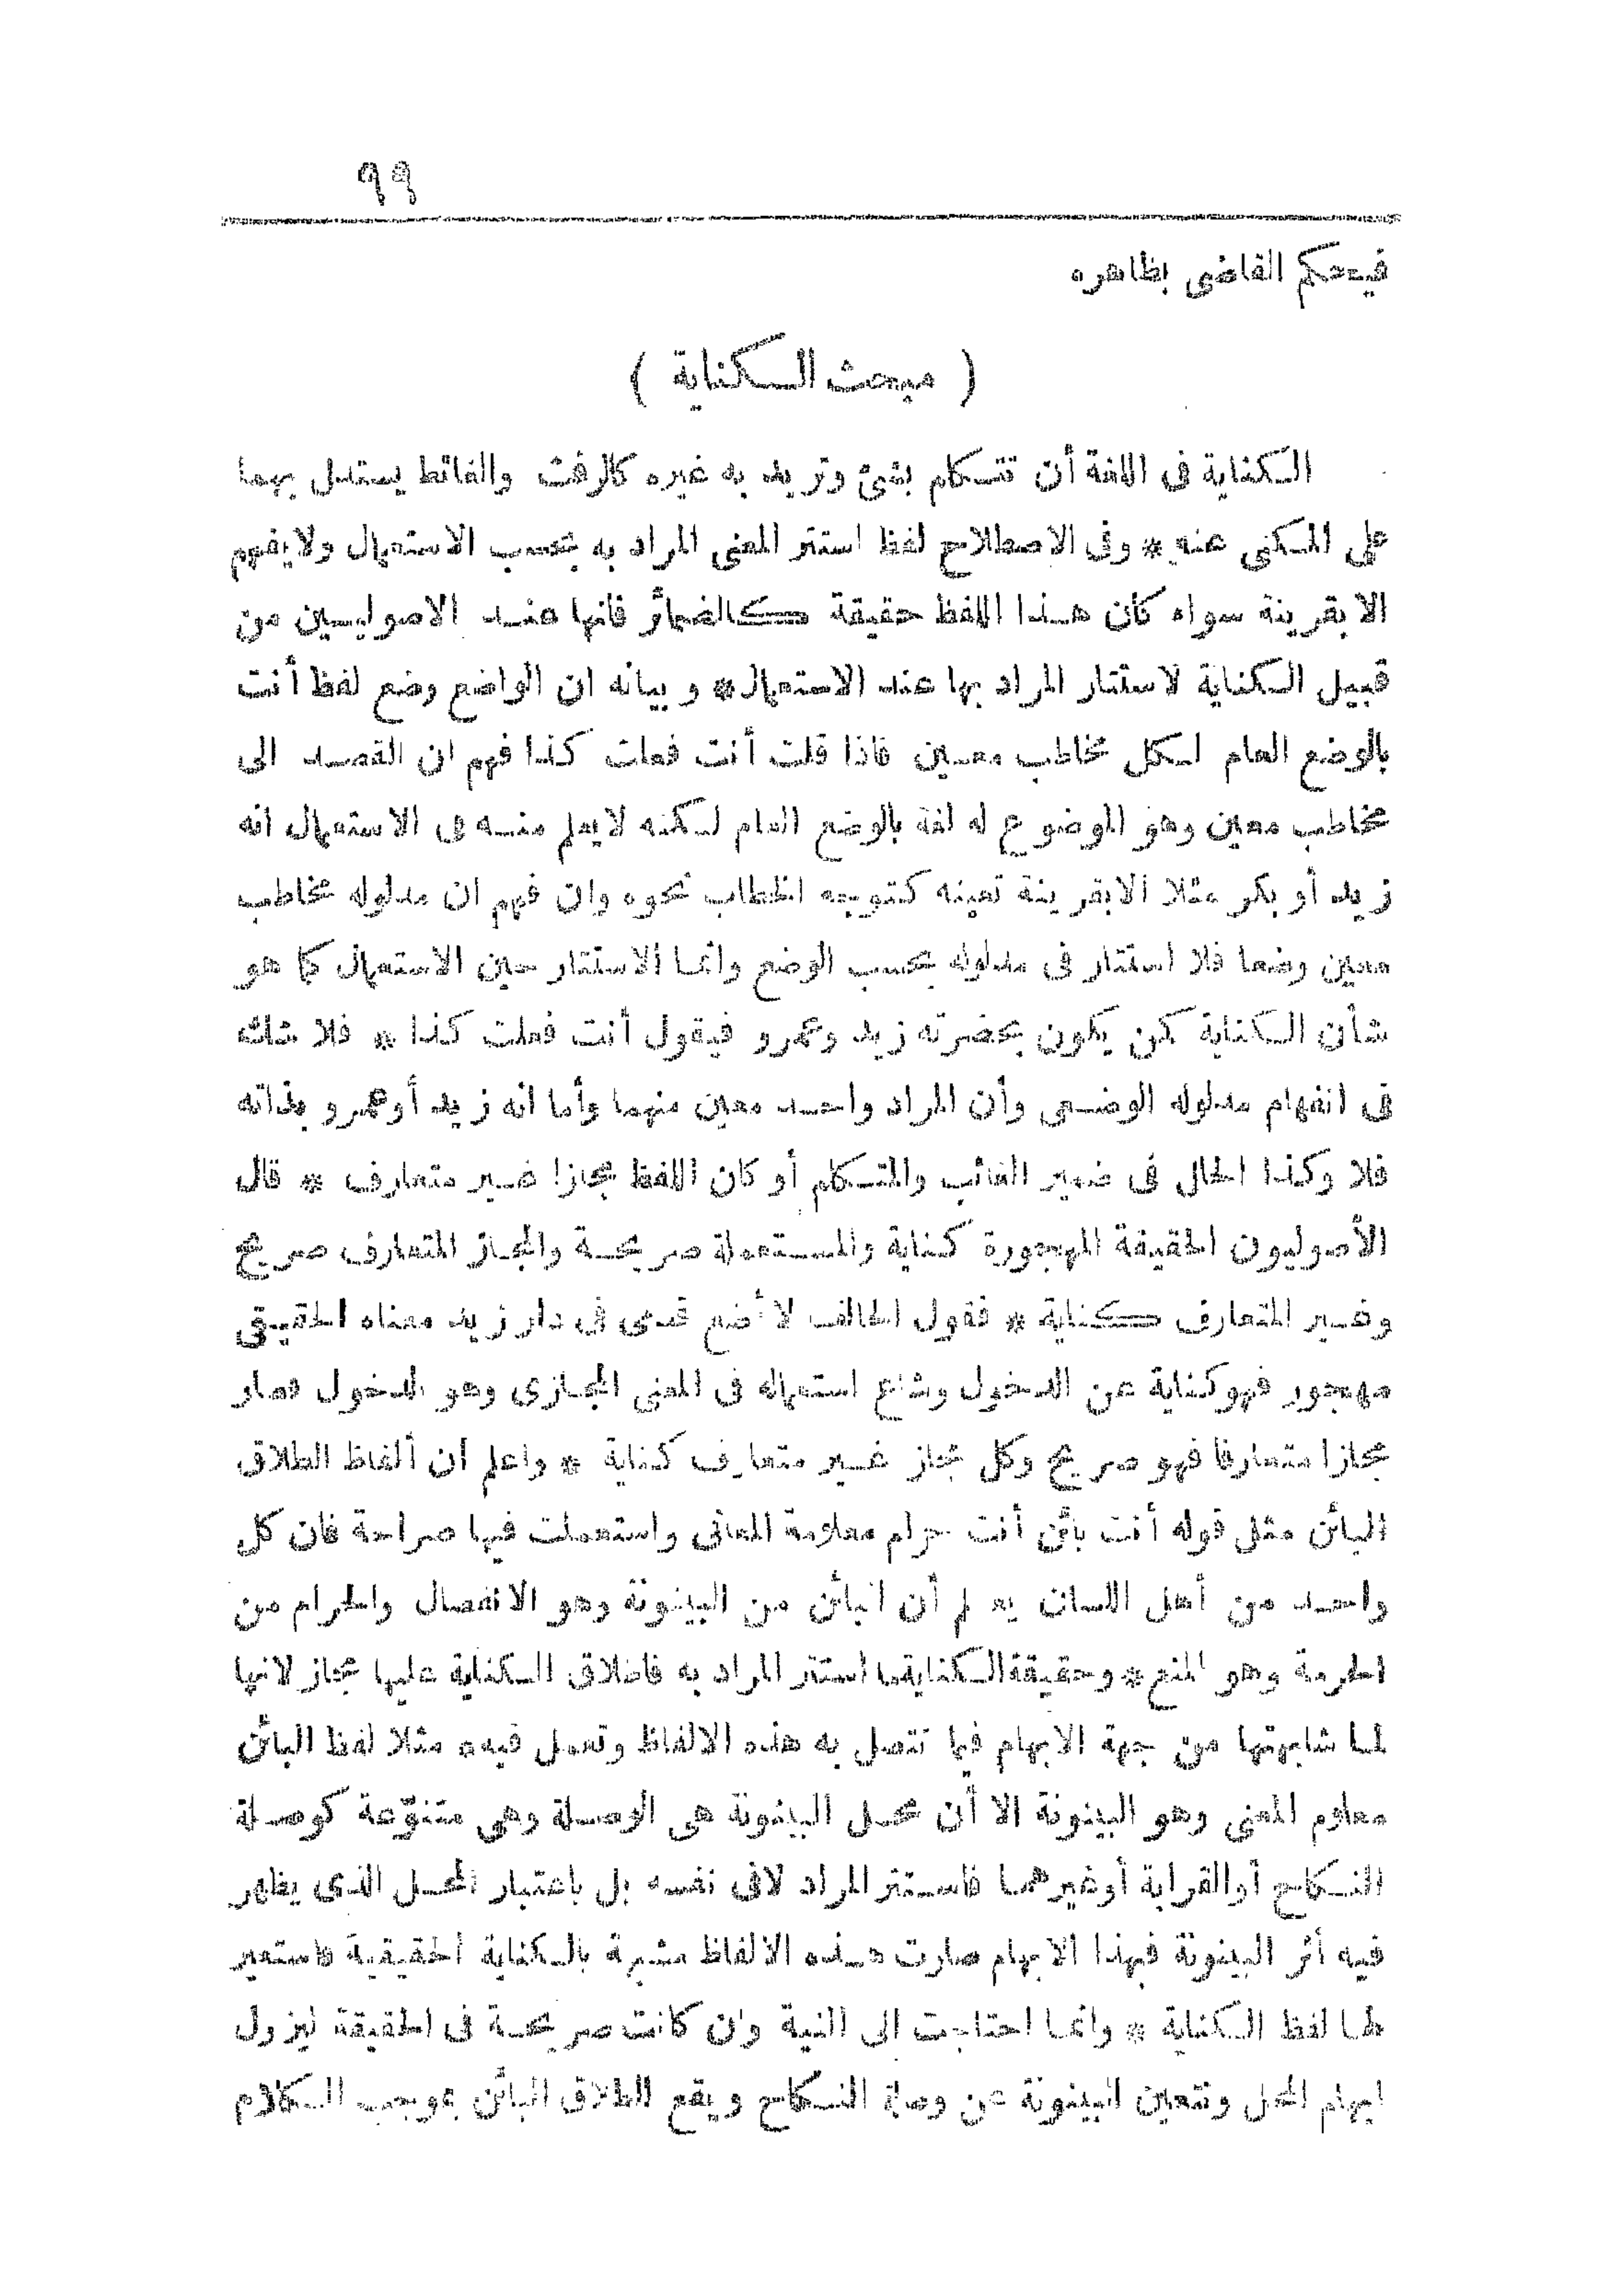 ٩٩
فيحكم القاضى بظاهره
( مبحث الكناية )
الكناية فى اللغة أن تتكلم بشئ وتريد به غيره كالرفث والغائط يستدل بهما
على المكنى عنه * وفى الاصطلاح لفظ استتر المعنى المراد به بحسب الاستعمال ولا يفهم
الا بقرينة سواء كان هذا اللفظ حقيقة كالضمائر فانها عند الاصوليين من
قبيل الكناية لاستتار المراد بها عند الاستعمال * وبيانه ان الواضع وضع لفظ أنت
بالوضع العام لكل مخاطب معين فاذا قلت أنت فعلت كذا فهم ان القصد الى
مخاطب معين وهو الموضوع له لغة بالوضع العام لكنه لا يعلم منه فى الاستعمال انه
زيد أو بكر مثلا الا بقرينة تعينه كتوجه الخطاب نحوه وان فهم ان مدلوله مخاطب
معين وضعا فلا استتار فى مدلوله بحسب الوضع وانما الاستتار حين الاستعمال كما هو
شأن الكناية كمن يكون بحضرته زيد وعمرو فيقول أنت فعلت كذا * فلا شك
فى انفهام مدلوله الوضعى وأن المراد واحد معين منهما وأما انه زيد أو عمرو بذاته
فلا وكذا الحال فى ضمير الغائب والمتكلم أو كان اللفظ مجازا غير متعارف * قال
الأصوليون الحقيقة المهجورة كناية والمستعملة صريحة والمجاز المتعارف صريح
وغير المتعارف كناية * فقول الحالف لا أضع قدمى فى دار زيد معناه الحقيقى
مهجور فهو كناية عن الدخول وشاع استعماله فى المعنى المجازى وهو الدخول فصار
مجازا متعارفا فهو صريح وكل مجاز غير متعارف كناية * واعلم ان ألفاظ الطلاق
البائن مثل قوله أنت بائن أنت حرام معلومة المعانى واستعملت فيها صراحة فان كل
واحد من أهل اللسان يعلم أن البائن من البينونة وهو الانفصال والحرام من
الحرمة وهو المنع * وحقيقة الكناية ما استتر المراد به فاطلاق الكناية عليها مجاز لانها
لما شابهتها من جهة الابهام فيما تتصل به هذه الالفاظ وتعمل فيه * مثلا لفظ البائن
معلوم المعنى وهو البينونة الا أن محل البينونة هى الوصلة وهى متنوّعة كوصلة
النكاح أو القرابة أو غيرهما فاستتر المراد لا فى نفسه بل باعتبار المحل الذى يظهر
فيه أثر البينونة فبهذا الابهام صارت هذه الالفاظ مشبهة بالكناية الحقيقية فاستعير
لها لفظ الكناية * وانما احتاجت الى النية وان كانت صريحة فى الحقيقة ليزول
ابهام المحل وتتعين البينونة عن وصلة النكاح ويقع الطلاق البائن بموجب الكلام